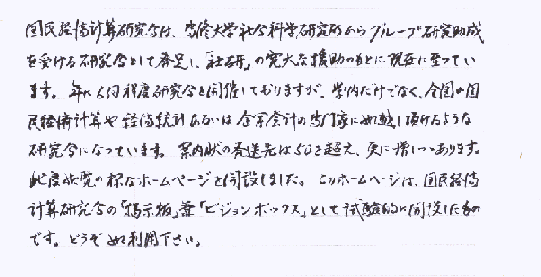 国民経済計算研究会は、専修大学社会科学研究所からグループ研究助成
を受ける研究会として発足し、「社研」の寛大な援助のもとに現在に至ってい
ます。年に人回程度研究会を開催しておりますが、学内だけでなく、全国の国
民経済計算や経済統計あるいは企業会計の専門家にお越し頂けるような
研究会になっています。案内状の発送先は50を超え、更に増しつつあります。
此度研究の様なホームページを開設しました。このホームページは、国民経済
計算研究会の「掲示板」兼「ビジョンボックス」として試験的に開設したもの
です。どうぞご利用下さい。